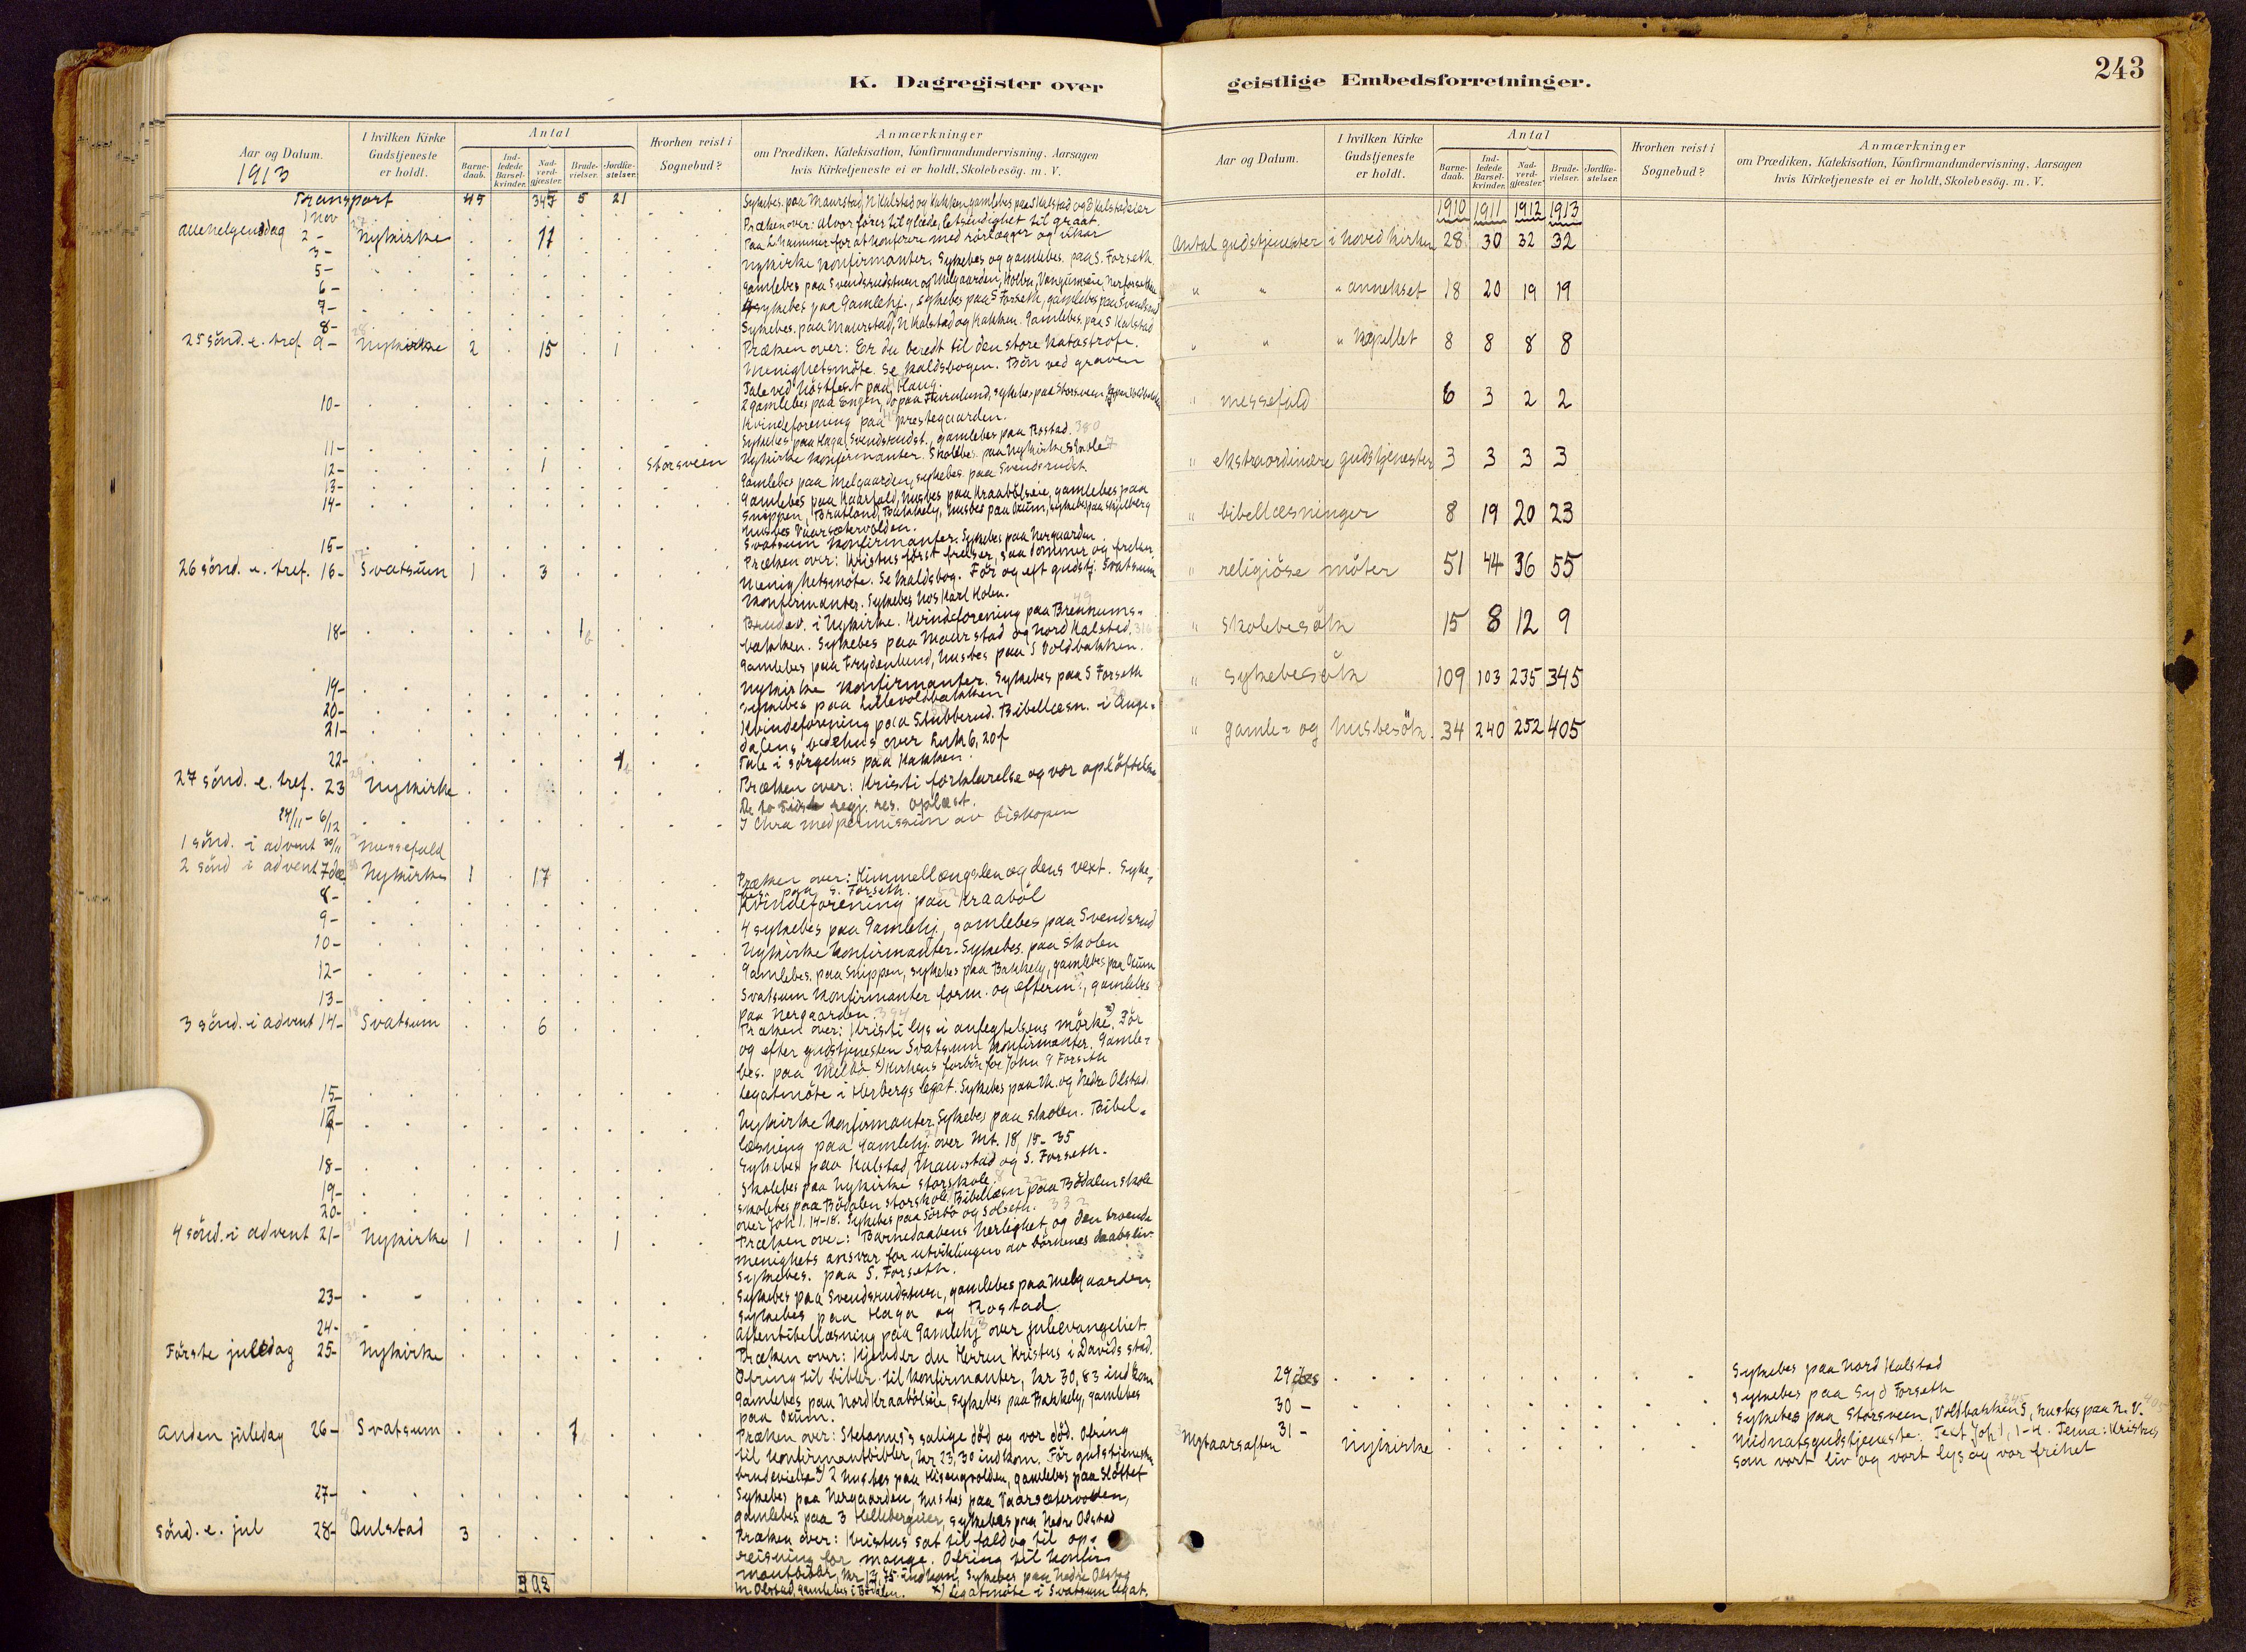 K. Dagregister over
geistlige Embedsforretninger.
243
Aar og Datum.
1913
I hvilken Kirke
Gudstjeneste
er holdt.
Antal
Barne-
daab.
Ind-
ledede
Barsel-
kvinder.
Nad-
verd-
gjester.
Brude-
vielser.
Jordfæ-
stelser.
Hvorhen reist i
Sognebud?
Anmærkninger
om Prædiken, Katekisation, Konfirmandundervisning, Aarsagen
hvis Kirketjeneste ei er holdt, Skolebesög. m. V.
Transport 45 347 5 21
1 nov Sykebes. paa Maurstad, N Kalstad og Kakken gamlebes paa S Kalstad og
Allehelgensdag 2 - Nykirke 17 Præken over: Alvor fører til glæde, letsindighet til graat.
3 - Paa L.hammer for at konferere med rörlægger og vikar
5 - Nykirke konfirmanter. Sykebes og gamlebes. paa S. Forseth
6 - Gamlebes paa Svendsrudstuen og Melgaarden,
7 - sykebes paa Gamlehj., sykebes paa S Forseth, gamlebes paa Svendsrud
8 - Sykebes. paa Maurstad, N Kalstad og Kakken. Gamlebes. paa S Kalstad
25 sönd. e. tref. 9 - Nykirke 2 15 1 Præken over: Er du beredt til den store katastrofe.
Menighetsmöte. Se kaldsbogen. Bön ved graven
Tale ved höstfest paa Haug.
10 - 2 gamlebes paa Engen, do paa Furulund, sykebes paa Storsveen,
Kvindeforening paa prestegaarden.
11 - Sykebes paa Haga, Svendsrudst., gamlebes paa Rostad. 380
12 - 1 Storsveen Nykirke konfirmanter. Skolebes. paa Nykirke skole
13 - Gamlebes paa Melgaarden, sykebes. paa Svendsrudst
14 - Gamlebes paa Kaarhold, husbes paa Kraabölseie, gamlebes paa
Snippen, Bratland, Bakkely, husbes paa Oxum, sykebes paa Skjelberg
husbes Vaarsætervolden.
15 - Svatsum konfirmanter. Sykebes paa Nergaarden.
26 sönd. e. tref. 16 - Svatsum 1 3 Præken over: Kristus först frelser, saa dommer og frelser.
Menighetsmöte. Se kaldsbog. För og eft gudstj. Svatsum
konfirmanter. Sykebes hos Karl Holen.
18 - 1 Brudev. i Nykirke. Kvindeforening paa Brennums-
bakken. Sykebes paa Maurstad og Nord Kalstad.
Gamlebes paa Frydenlund, husbes paa S Voldbakken.
19 - Nykirke konfirmanter. Sykebes paa S Forseth
20 - Sykebes paa Lillevoldbakken
21 - Kvindeforening paa Stubberud. Bibellæsn. i Auge-
dalens bedehus over Luk 6, 20f
22 - 1 Tale i sörgehus paa Kakken.
27 sönd. e. tref. 23 Nykirke Præken over: Kristi forklarelse og vor oplöftelse
De to sidste regj. res. oplæst.
24/11 - 6/12 I Chra med permission av biskopen
1 sönd. i advent 30/11 Messefald
2 sönd i advent 7 dec. Nykirke 1 17 Præken over: Himmellængslen og dens vext. Syke-
bes paa S. Forseth.
8 - Kvindeforening paa Kraaböl
9 - 4 sykebes paa Gamlehj., gamlebes paa Svendsrud
10 - Nykirke konfirmanter. Sykebes. paa Skolen
12 - Gamlebes. paa Snippen, sykebes paa Bakkely, gamlebes paa Oxum
13 - Svatsum konfirmanter form. og efterm., gamlebes
paa Nergaarden. 394
3 sönd. i advent 14 - Svatsum 6 Præken over: Kristi lys i anfegtelsens mörke. För
og efter gudstjenesten Svatsum konfirmanter. Gamle-
bes. paa Melbö Kirkens forbön for John G Forseth
15 - Legatmöte i Herbergs legat. Sykebes paa M. og Nedre Olstad.
17 - Nykirke konfirmanter, Sykebes paa skolen. Bibel-
læsning paa Gamlehj. over Mt. 18, 15-35
18 - Sykebes paa Kalstad, Maurstad og S. Forseth.
19 - Skolebes paa Nykirke storskole.
20 - Skolebes paa Bödalen storskole. Bibellæsn paa Bödalen skole
over Joh 1, 14-18. Sykebes paa Sörbö og Solseth. 332
4 sönd. i advent 21 - Nykirke 1 1 Præken over: Barnedaabens herlighet, og den troende
menighets ansvar for utviklingen av börnenes daabsliv.
Sykebes. paa S. Forseth.
23 - Sykebes paa Svendsrudstuen, gamlebes paa Melgaarden,
Sykebes paa Haga og Rostad
24 - Aftenbibellæsning paa Gamlehj over juleevangeliet.
Förste juledag 25 - Nykirke Præken over: Kjender du Herren Kristus i Davids stad.
Ofring til bibler til konfirmanter, kr 30,83 indkom
Gamlebes paa Nord Kraabölseie, Sykebes paa Bakkely, gamlebes
paa Oxum.
Anden juledag 26 - Svatsum 1 Præken over: Stefanus's salige död og vor död. Ofring
til konfirmantbibler, kr 23,30 indkom. För gudstjenesten
brudevielse. 2 husbes paa Hisengvolden, gamlebes paa Slottet
27 - Sykebes paa Nergaarden, husbes paa Vaarsætervolden,
gamlebes paa 3 Helleberseier, sykebes paa Nedre Olstad
Sönd. e. jul 28 - Aulstad 3 Præken over: Kristus sat til fald og til op-
reisning for mange. Ofring til konfir-
mantbibler, kr 13,75 indkom. Sykebes paa Nedre Olstad
M Olstad, gamlebes i Bödalen. x) Legatmöte i Svatsum legat.
402
Aar og Datum.
I hvilken Kirke
Gudstjeneste
er holdt.
Antal
Barne-
daab.
Ind-
ledede
Barsel-
kvinder.
Nad-
verd-
gjester.
Brude-
vielser.
Jordfæ-
stelser.
Hvorhen reist i
Sognebud?
Anmærkninger
om Prædiken, Katekisation, Konfirmandundervisning, Aarsagen
hvis Kirketjeneste ei er holdt, Skolebesög. m. V.
1910 1911 1912 1913
Antal gudstjenester i hovedkirken 28 30 32 32
" " " annekset 18 20 19 19
" " " kapellet 8 8 8 8
" messefald 6 3 2 2
" ekstraordinære gudstjenester 3 3 3 3
" bibellæsninger 8 19 20 23
" religiöse möter 51 44 36 55
" skolebesök 15 8 12 9
" sykebesök 109 103 235 345
" gamle- og husbesök. 34 240 252 405
29 des Sykebes paa Nord Kalstad
30 - Sykebes paa Syd Forseth
31 - Sykebes paa Storsveen, Voldbakken S, husbes paa N. V.
Nytaarsaften Nykirke Midnatsgudstjeneste. Text Joh 1, 1-4. Tema: Kristus
som vort liv og vort lys og vor frihet